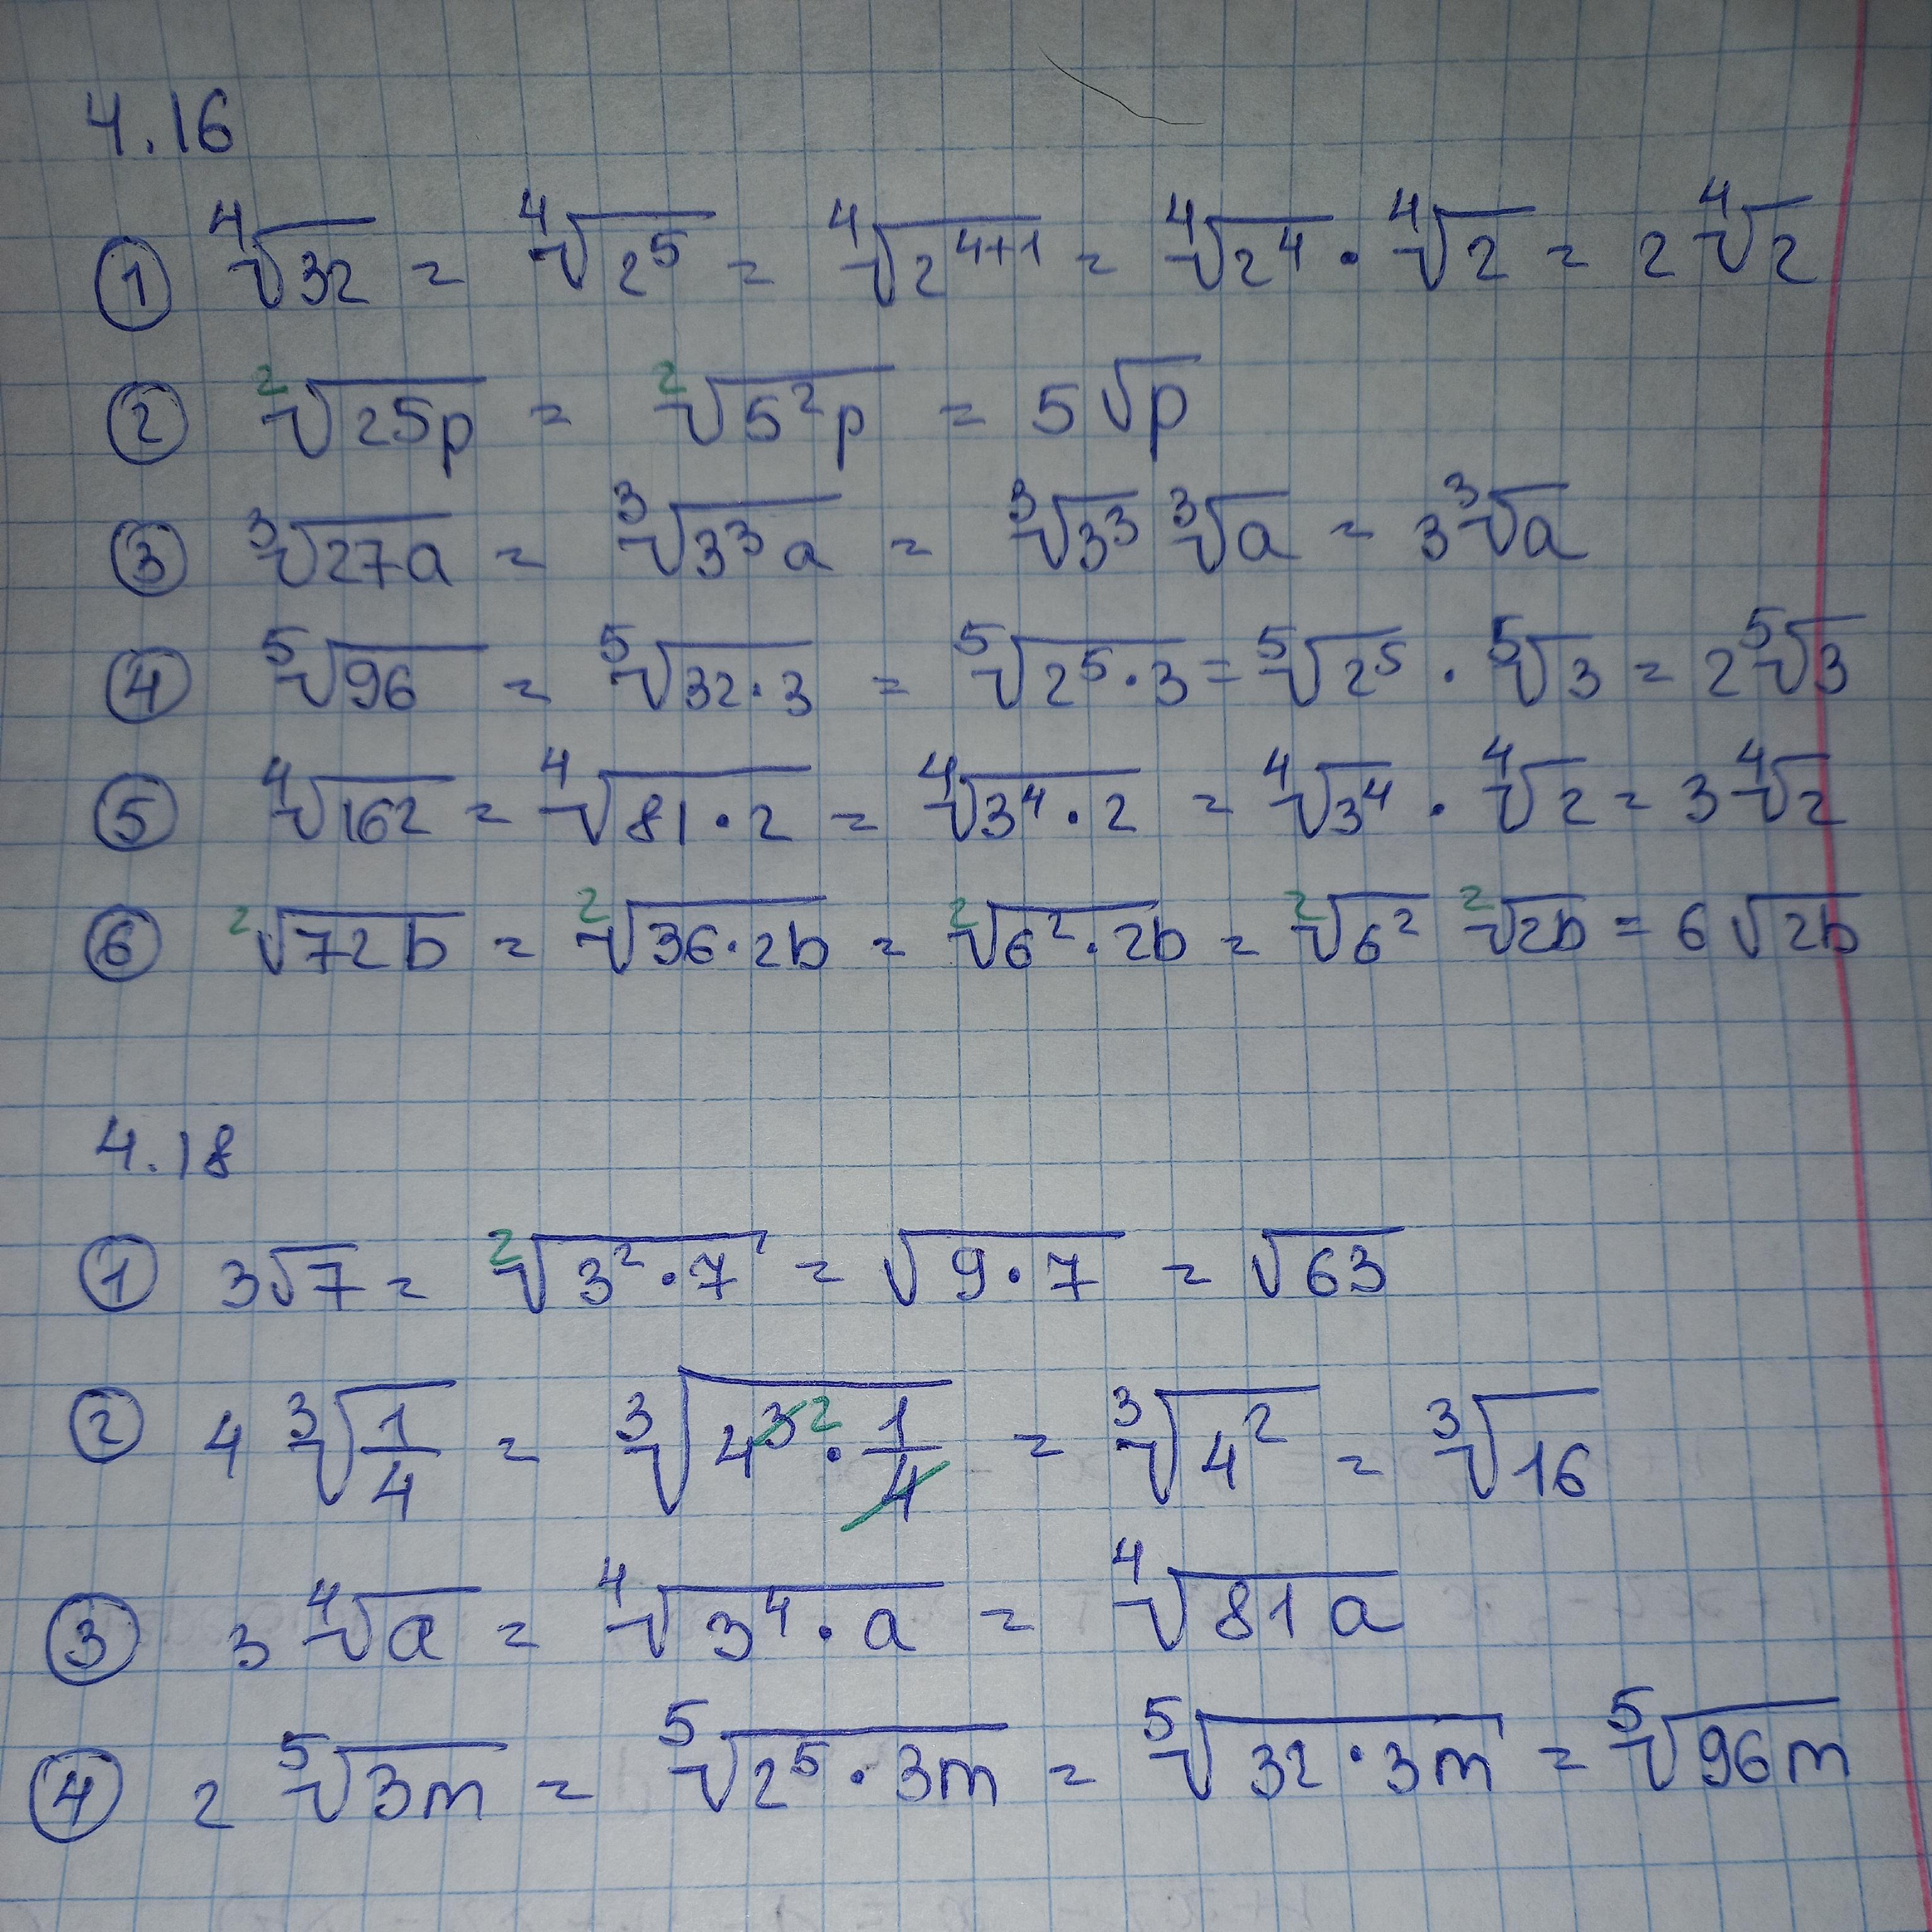 4.16
① ⁴√32 = ⁴√2⁵ = ⁴√2⁴⁺¹ = ⁴√2⁴ · ⁴√2 = 2 ⁴√2
② ²√25p = ²√5²p = 5√p
③ ³√27a = ³√3³a = ³√3³ ³√a = 3 ³√a
④ ⁵√96 = ⁵√32·3 = ⁵√2⁵·3 = ⁵√2⁵ · ⁵√3 = 2 ⁵√3
⑤ ⁴√162 = ⁴√81·2 = ⁴√3⁴·2 = ⁴√3⁴ · ⁴√2 = 3 ⁴√2
⑥ ²√72b = ²√36·2b = ²√6²·2b = ²√6² ²√2b = 6√2b
4.18
① 3√7 = ²√3²·7 = √9·7 = √63
② 4 ³√1/4 = ³√4³ ²·1/4 = ³√4² = ³√16
③ 3 ⁴√a = ⁴√3⁴·a = ⁴√81a
④ 2 ⁵√3m = ⁵√2⁵·3m = ⁵√32·3m = ⁵√96m